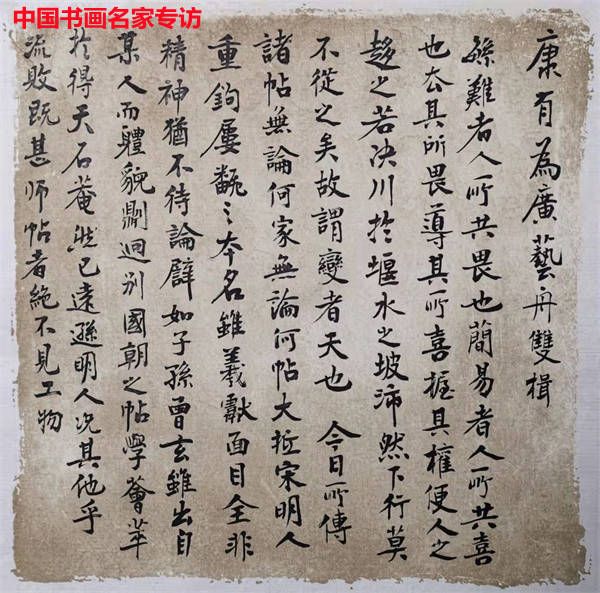 中国书画名家专访
康有為廣藝舟雙楫
緐難者人所共畏也簡易者人所共喜
也去其所畏導其所喜握其權便人之
趍之若決川於堰水之坡沛然下行莫
不從之矣故謂變者天也 今日所傳
諸帖無論何家無論何帖大抵宋明人
重鉤屢翻之本名雖羲獻面目全非
精神猶不待論譬如子孫曾玄雖出自
某人而體貌則迥别國朝之帖學薈萃
於得天石菴然已遠遜明人況其他乎
流敗既甚師帖者絕不見工物